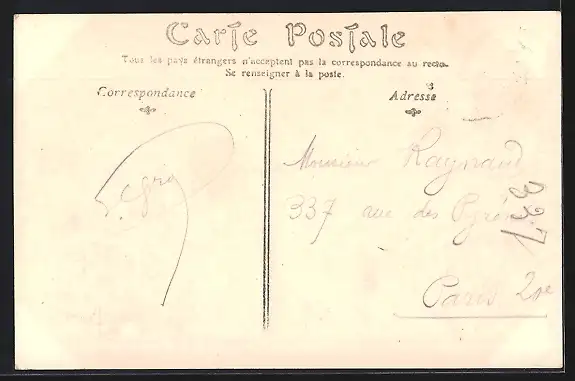 Carte Postale
Tous les pays étrangers n'acceptent pas la correspondance au recto.
Se renseigner à la poste.
Correspondance
Adresse
Monsieur Raynaud
337 rue des Pyrén
Paris 20e